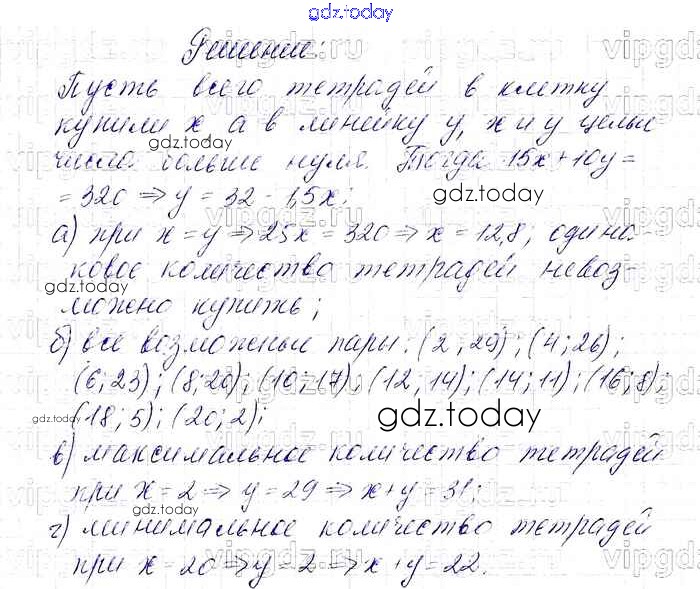 gdz.today
Решение:
Пусть всего тетрадей в клетку
купили x а в линейку y, x и y целые
gdz.today
числа больше нуля. Тогда 15x+10y=
=320 ⇒ y = 32 - 1,5x;
gdz.today
а) при x=y ⇒ 25x=320 ⇒ x=12,8; одина-
ковое количество тетрадей невоз-
gdz.today
можно купить;
б) все возможные пары: (2;29); (4;26);
(6;23); (8;20); (10;17); (12,14); (14;11); (16;8);
gdz.today
(18;5); (20;2);
gdz.today
в) максимальное количество тетрадей
при x=2 ⇒ y=29 ⇒ x+y=31;
г) минимальное количество тетрадей
при x=20 ⇒ y=2 ⇒ x+y=22.
gdz.today